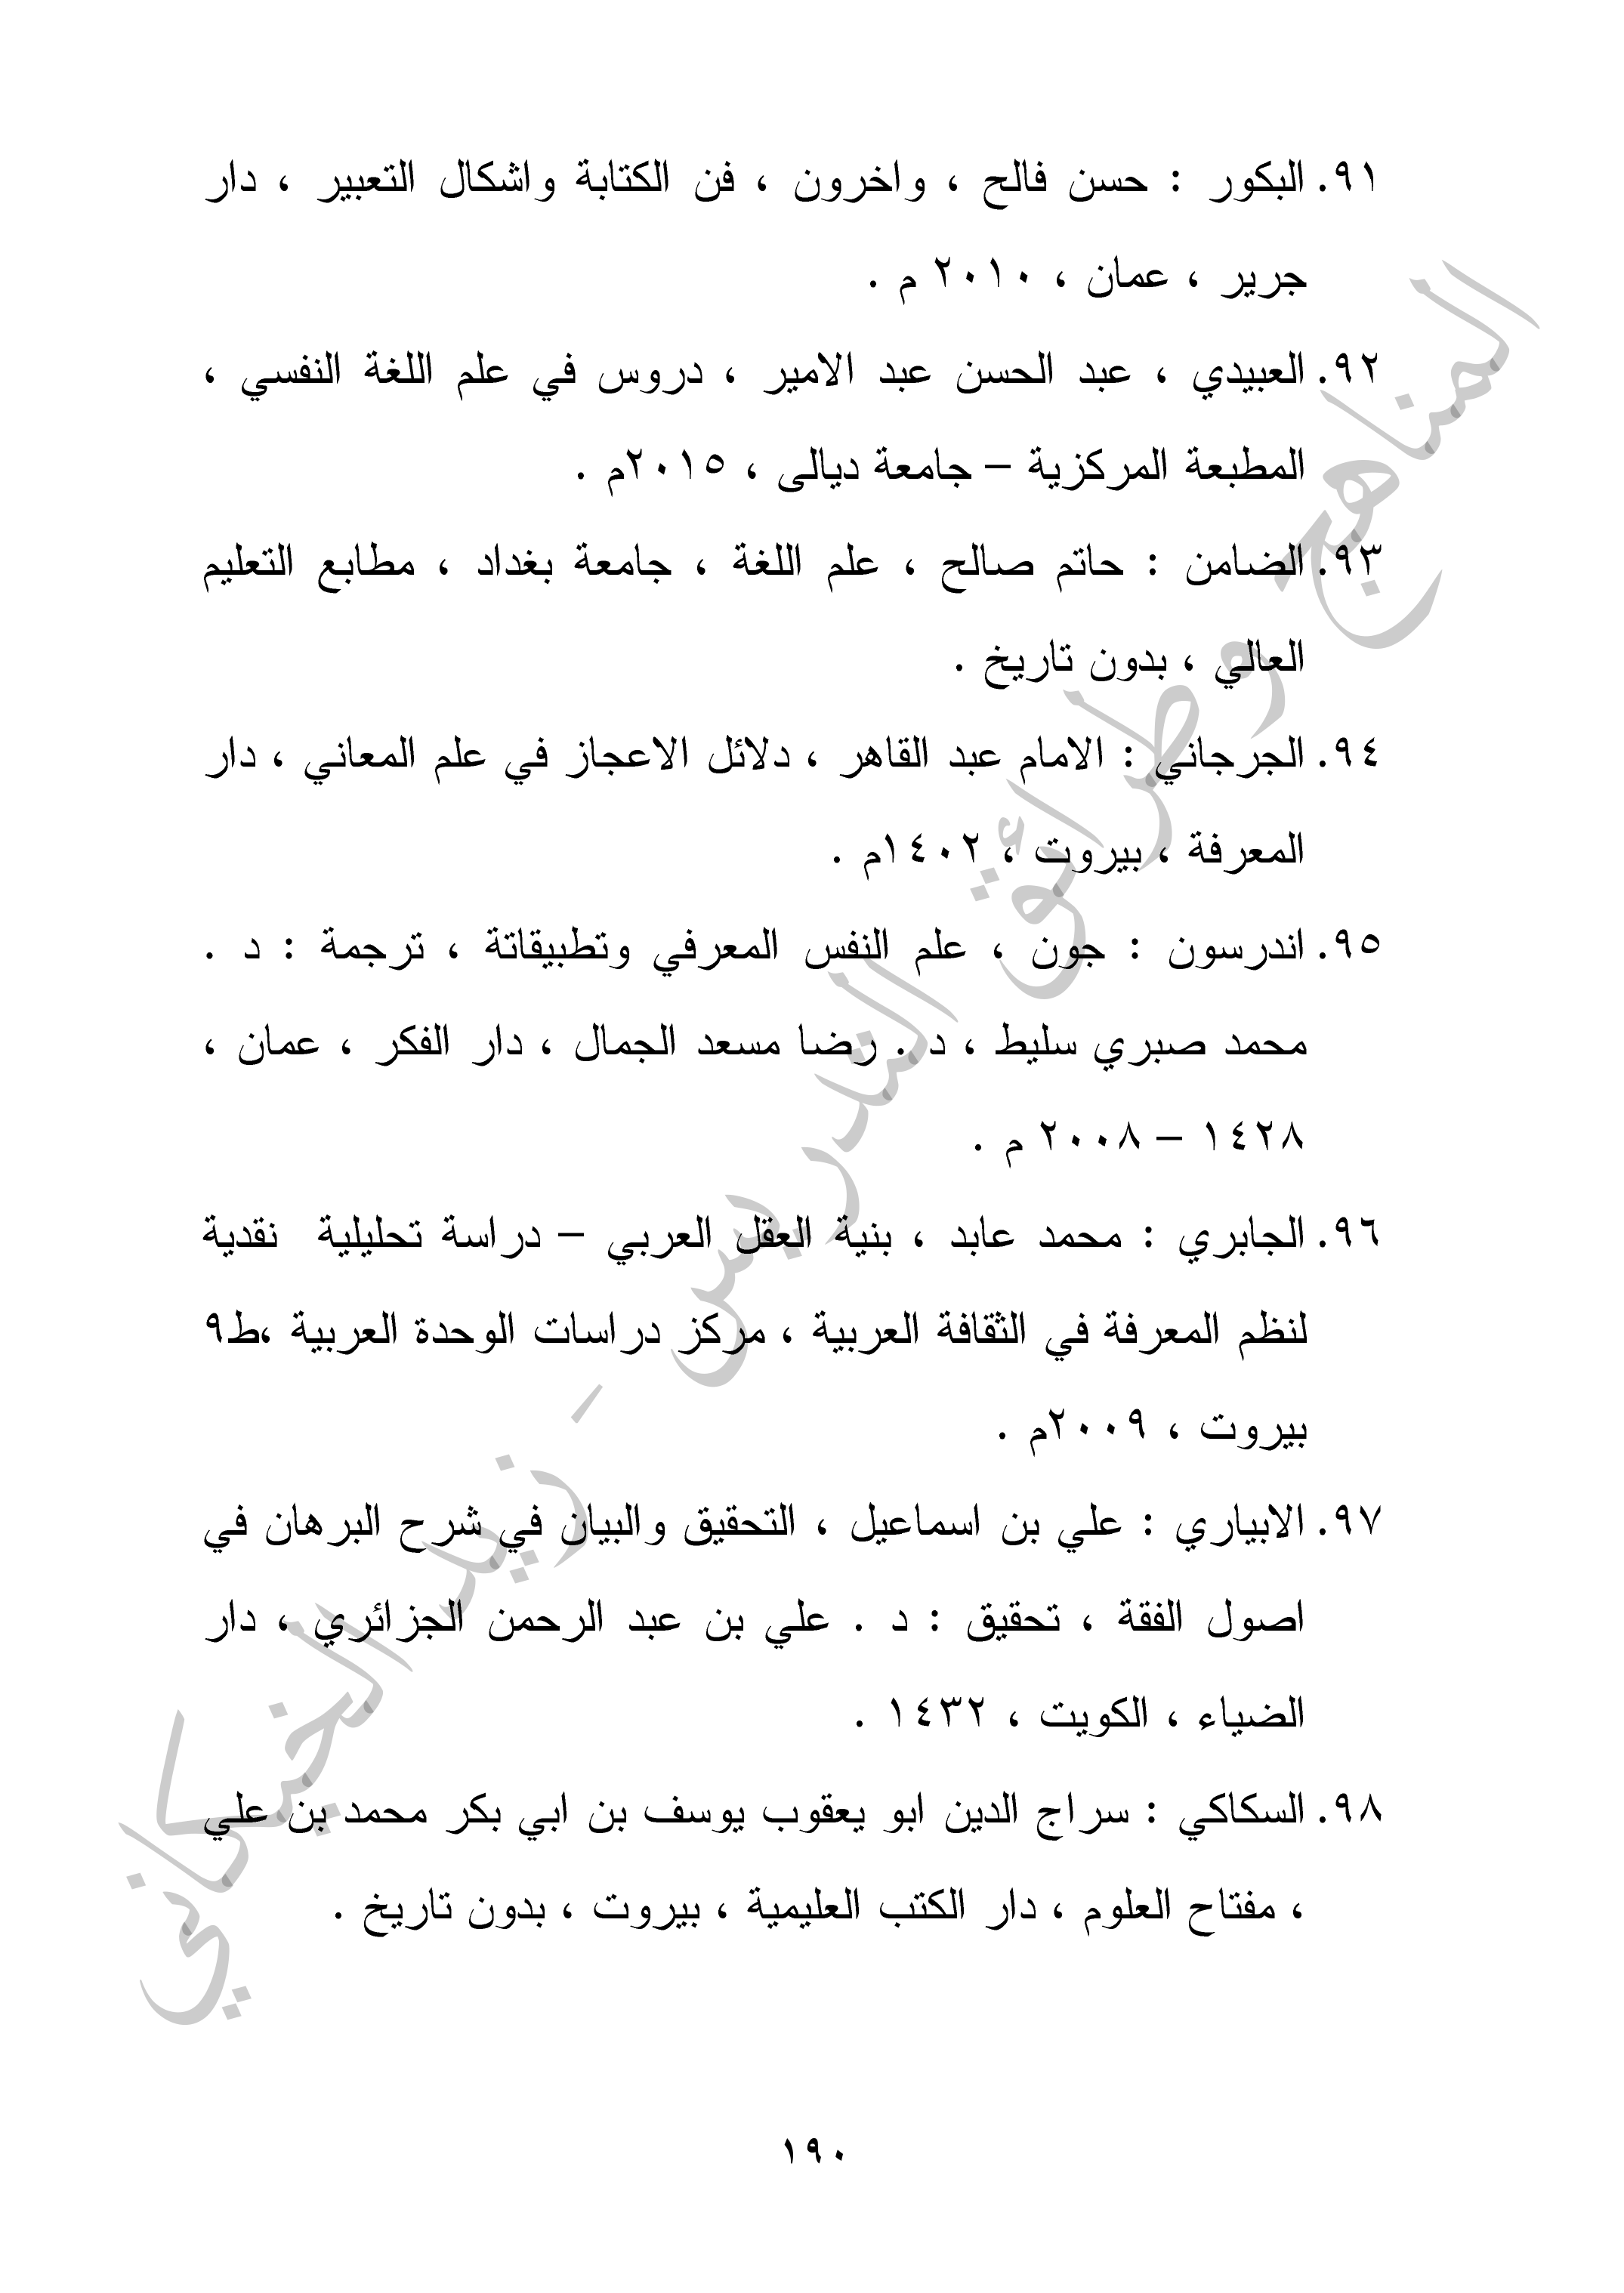 ٩١. البكور : حسن فالح ، واخرون ، فن الكتابة واشكال التعبير ، دار
جرير ، عمان ، ٢٠١٠ م .
٩٢. العبيدي ، عبد الحسن عبد الامير ، دروس في علم اللغة النفسي ،
المطبعة المركزية – جامعة ديالى ، ٢٠١٥م .
٩٣. الضامن : حاتم صالح ، علم اللغة ، جامعة بغداد ، مطابع التعليم
العالي ، بدون تاريخ .
٩٤. الجرجاني : الامام عبد القاهر ، دلائل الاعجاز في علم المعاني ، دار
المعرفة ، بيروت ، ١٤٠٢م .
٩٥. اندرسون : جون ، علم النفس المعرفي وتطبيقاتة ، ترجمة : د .
محمد صبري سليط ، د . رضا مسعد الجمال ، دار الفكر ، عمان ،
١٤٢٨ – ٢٠٠٨ م .
٩٦. الجابري : محمد عابد ، بنية العقل العربي – دراسة تحليلية نقدية
لنظم المعرفة في الثقافة العربية ، مركز دراسات الوحدة العربية ،ط٩
بيروت ، ٢٠٠٩م .
٩٧. الابياري : علي بن اسماعيل ، التحقيق والبيان في شرح البرهان في
اصول الفقة ، تحقيق : د . علي بن عبد الرحمن الجزائري ، دار
الضياء ، الكويت ، ١٤٣٢ .
٩٨. السكاكي : سراج الدين ابو يعقوب يوسف بن ابي بكر محمد بن علي
، مفتاح العلوم ، دار الكتب العليمية ، بيروت ، بدون تاريخ .
١٩٠
المناهج وطرائق التدريس - زيد الخيكاني